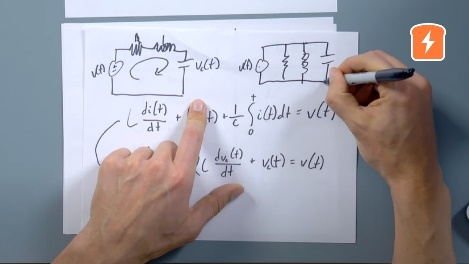 R
v(t) v_c(t) v(t)
L di(t)/dt + (t) + 1/C ∫₀ᵗ i(t)dt = v(t)
C dv_c(t)/dt + v_c(t) = v(t)